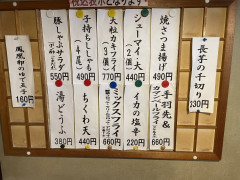 税込表示となります。
長芋の千切り
330円
焼さつま揚げ
490円
シューマイ天
(2個)
440円
大粒カキフライ
(4個)
770円
子持ちししゃも
(3尾)
490円
豚しゃぶサラダ
550円
鳳凰卵のゆで玉子
160円
手羽先&
カマンベールフライ
イカの塩辛
220円
ミックスフライ
660円
ちくわ天
440円
湯どうふ
380円